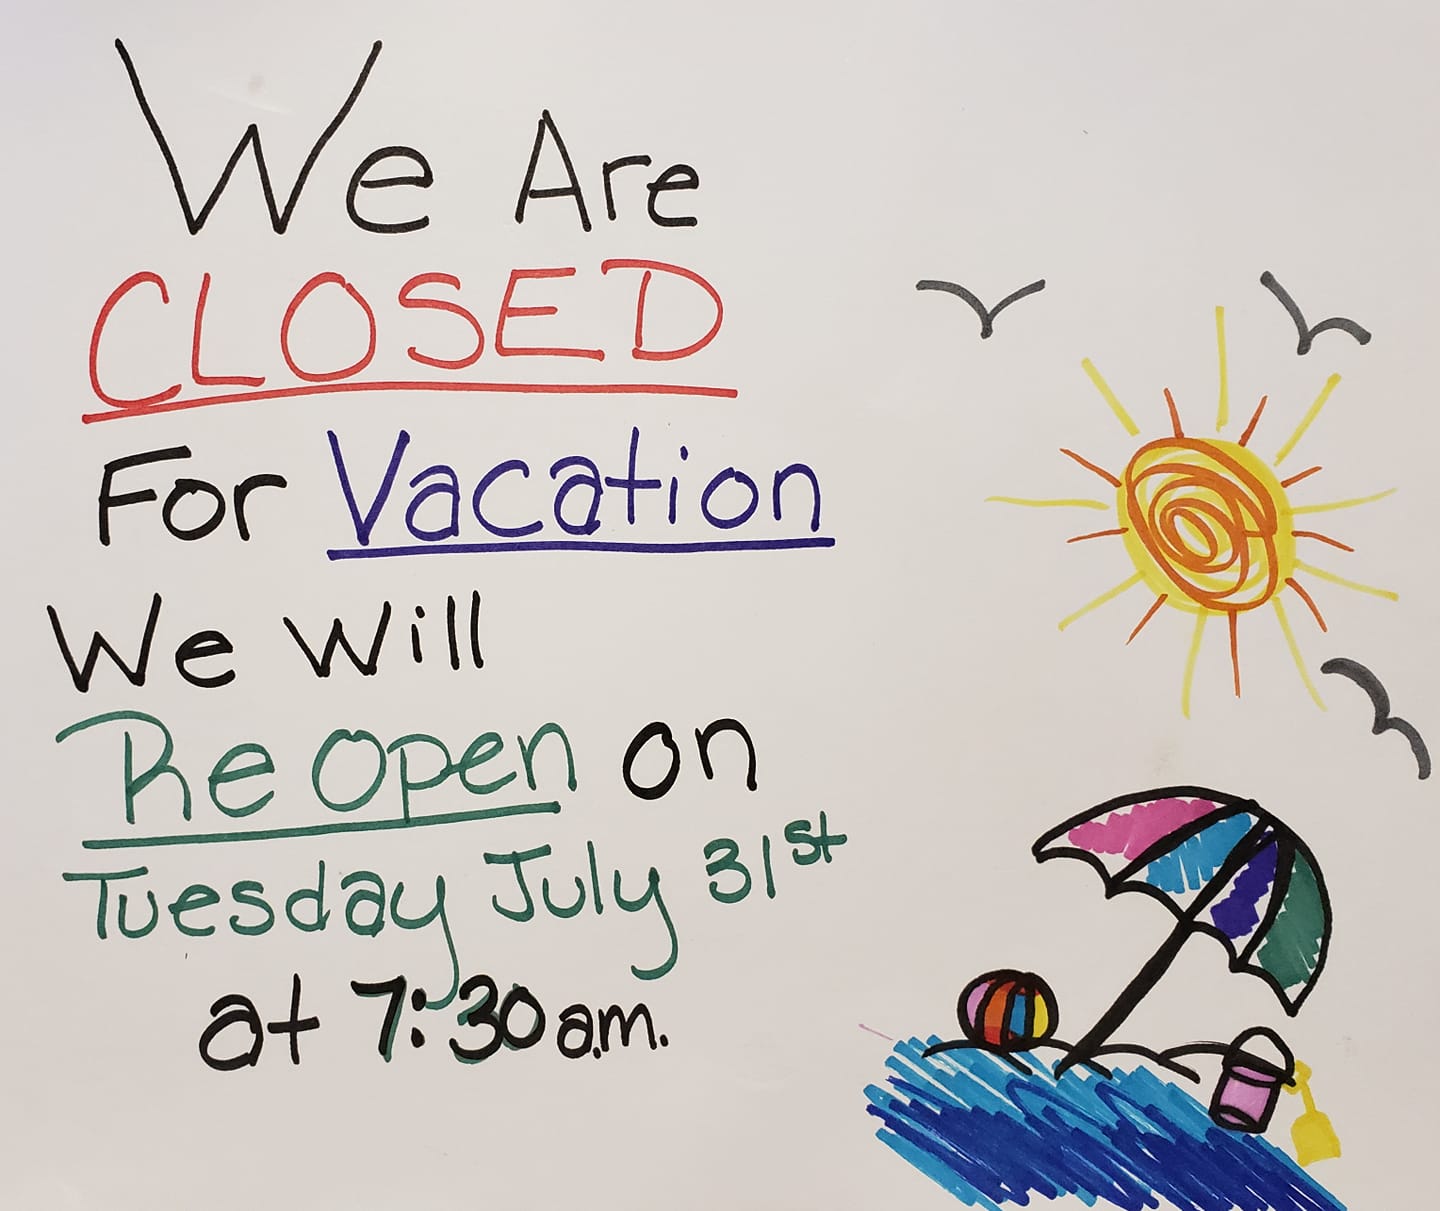 We Are
CLOSED
For Vacation
We Will
Re Open on
Tuesday July 31st
at 7:30 a.m.